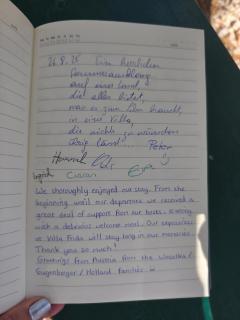 26.8.25 Ein herrlicher
Sommerausklang
auf einer Insel,
die alles bietet,
was es zum Leben braucht,
in einer Villa,
die nichts zu wünschen
übrig lässt! Peter
Ingrid Ciaran
We thoroughly enjoyed our stay. From the
beginning until our departure we received a
great deal of support from our hosts. Starting
with a delicious welcome meal. Our experiences
at Villa Frida will stay long in our memories.
Thank you so much!
Greetings from Austria from the
Guggenberger / Holland Families